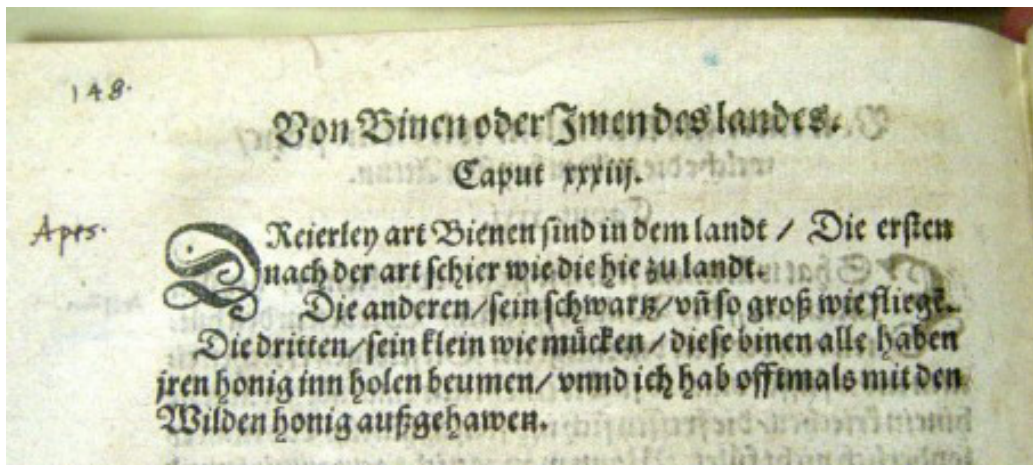 148.
Von Binen oder Imen des landes.
Caput xxxiiij.
Apes.
DReierley art Bienen sind in dem landt / Die ersten
nach der art schier wie die hie zu landt.
Die anderen / sein schwartz / vñ so groß wie fliegē.
Die dritten / sein klein wie mücken / diese binen alle haben
jren honig inn holen beumen / vnnd ich hab offtmals mit den
Wilden honig außgehawen.